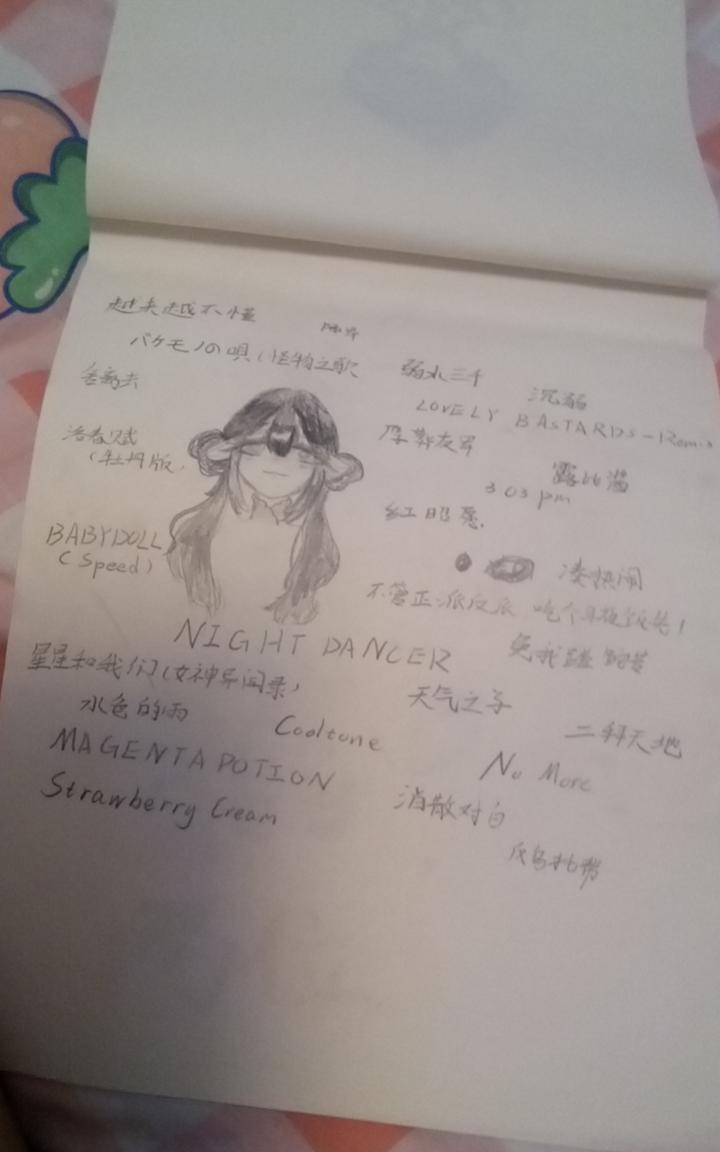 越来越不懂
バケモノの唄(怪物之歌
弱水三千
沉溺
LOVELY BASTARDS-Remix
洛春赋
(牡丹版)
露比酱
303 pm
红昭愿
BABYDOLL
(Speed)
凑热闹
不管正派反派 吃个年夜饭先!
NIGHT DANCER
星星和我们(女神异闻录)
天气之子
水色的雨
Cooltone
二轩天地
MAGENTA POTION
No More
Strawberry Cream
消散对白
反乌托邦